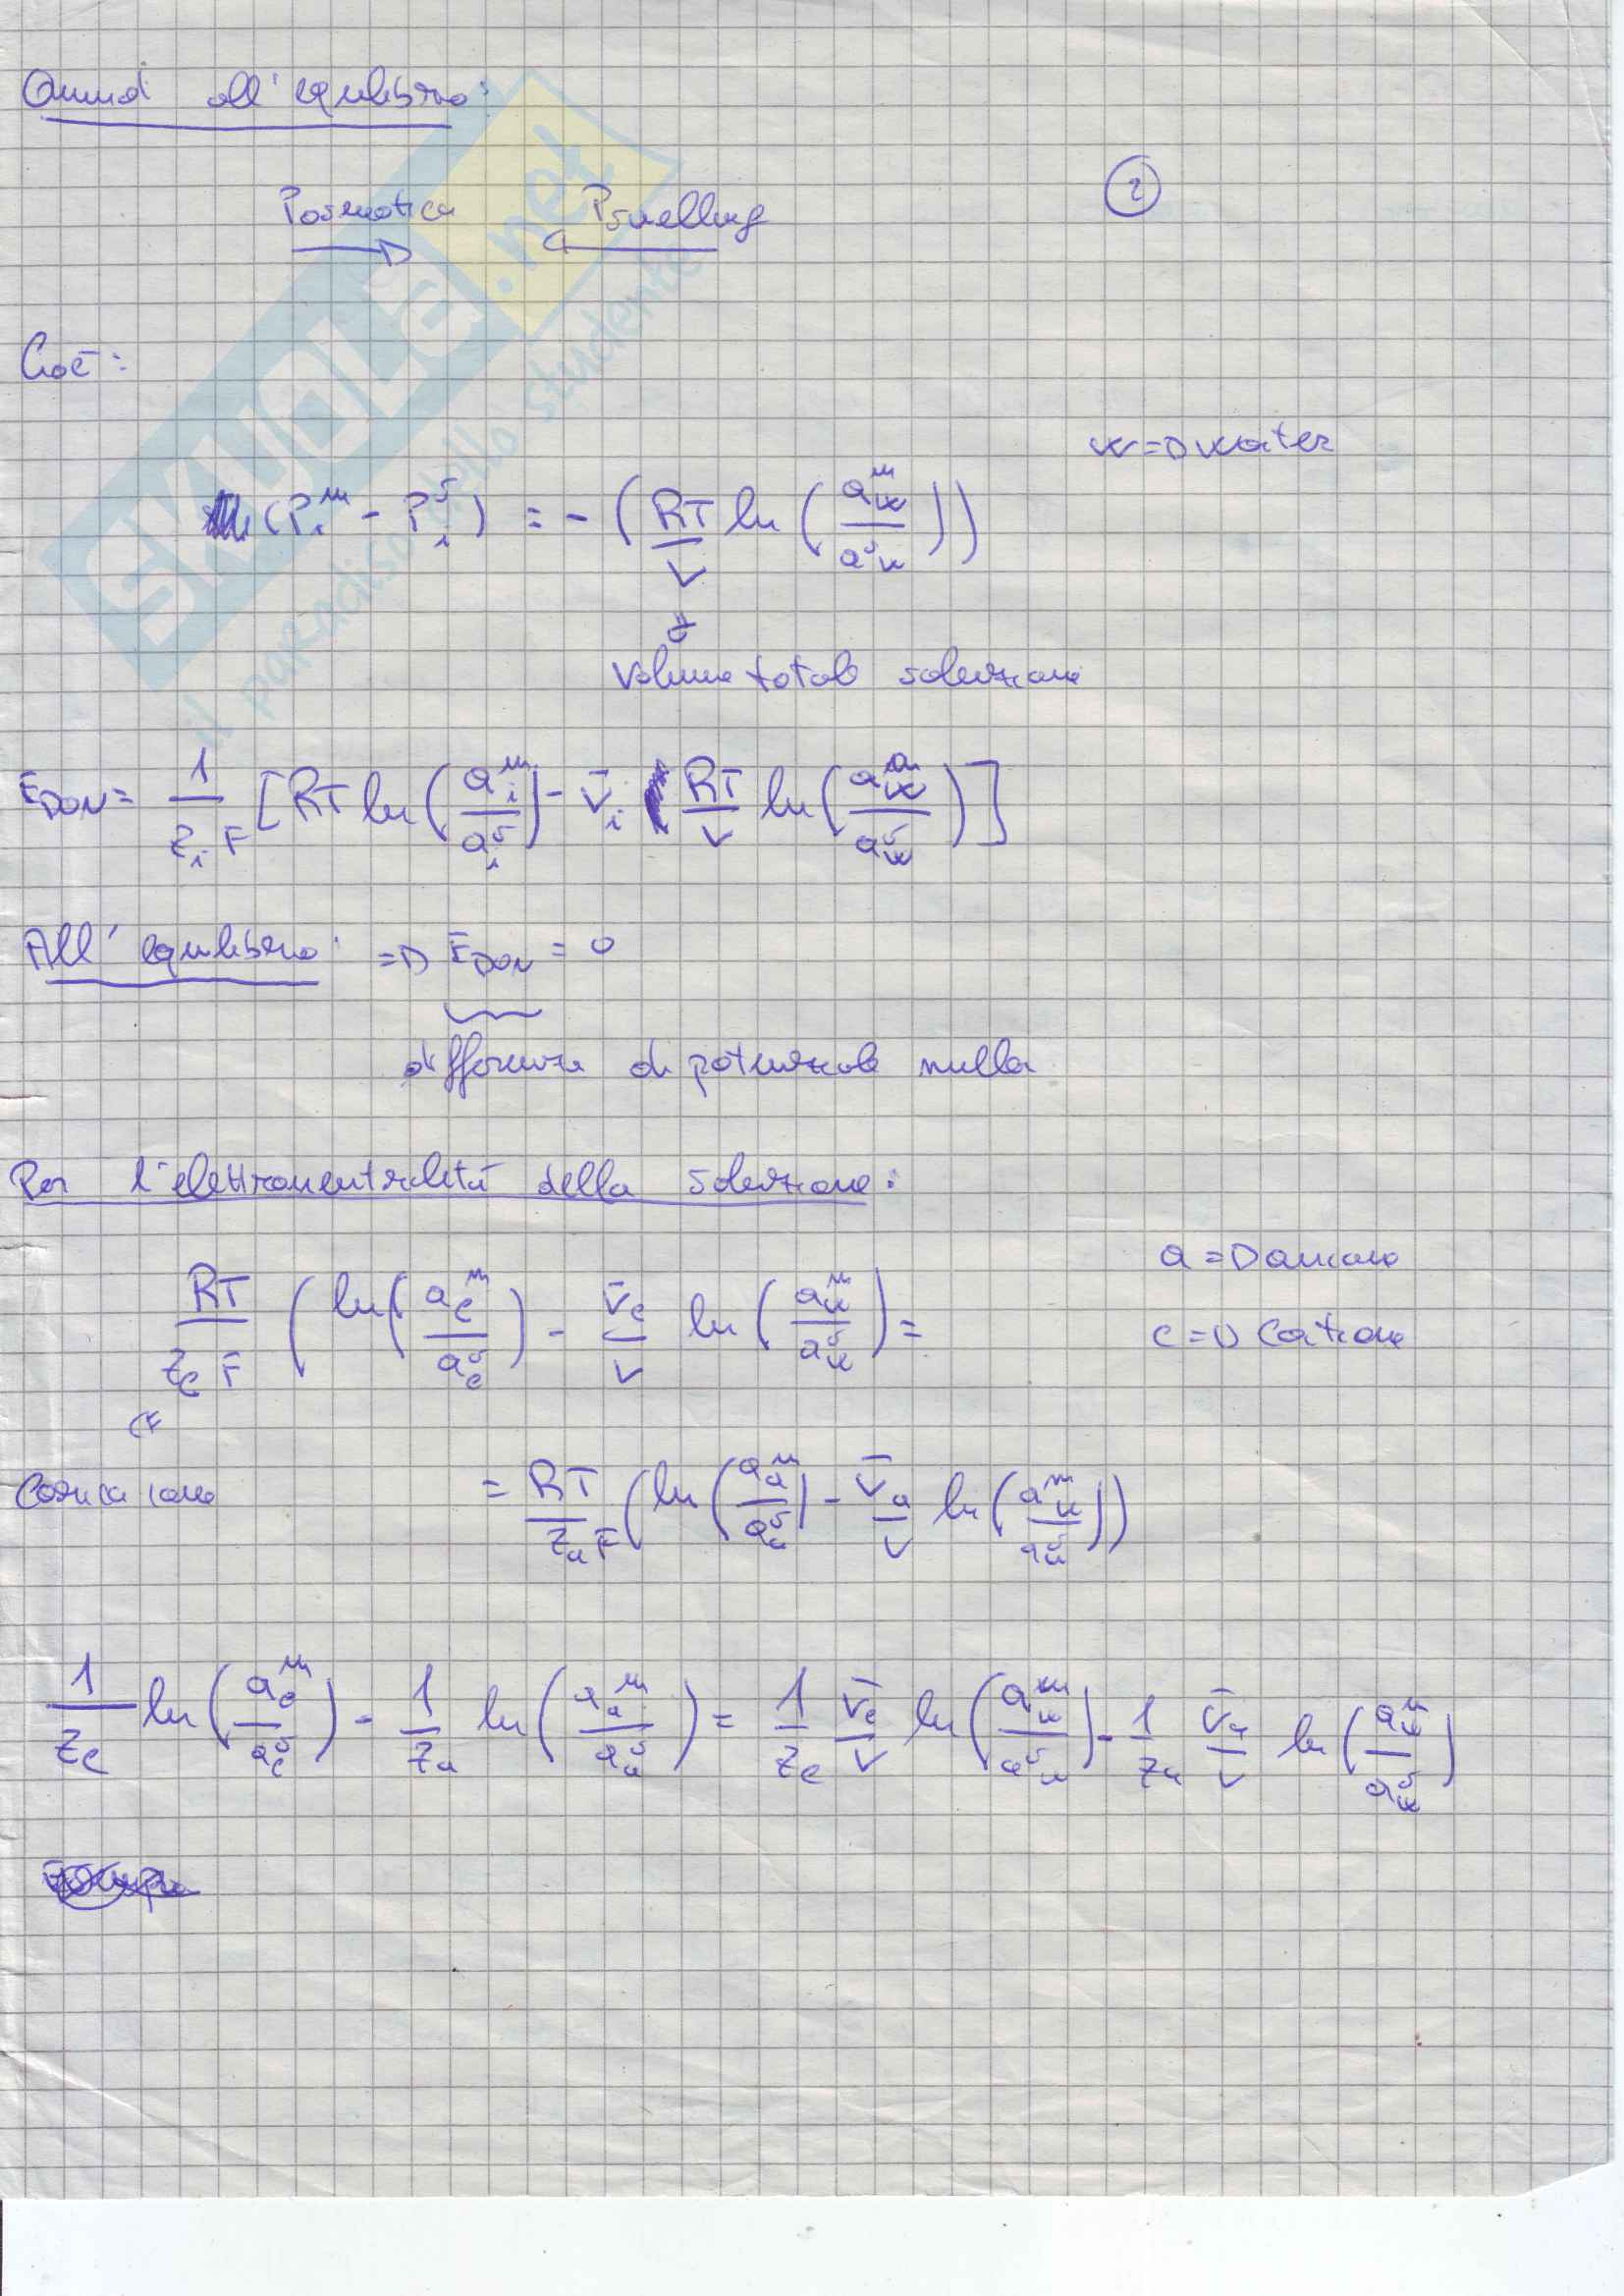 Quindi all'equilibrio:
2
Posmotica Pswelling
Cioè:
w => water
(P_i^m - P_i^s) = - (RT/V ln (a_w^m / a_w^s))
Volume totale soluzione
E_DON = 1/(z_i F) [RT ln (a_i^m / a_i^s) - V̄_i RT/V ln (a_w^m / a_w^s)]
All'equilibrio: => E_DON = 0
differenza di potenziale nulla
Per l'elettroneutralità della soluzione:
a => anione
RT/(z_c F) (ln (a_c^m / a_c^s) - V̄_c/V ln (a_w^m / a_w^s) =
c => Catione
= RT/(z_a F) (ln (a_a^m / a_a^s) - V̄_a/V ln (a_w^m / a_w^s))
1/z_c ln (a_c^m / a_c^s) - 1/z_a ln (a_a^m / a_a^s) = 1/z_c V̄_c/V ln (a_w^m / a_w^s) - 1/z_a V̄_a/V ln (a_w^m / a_w^s)
SKUOLA.net
il paradiso dello studente